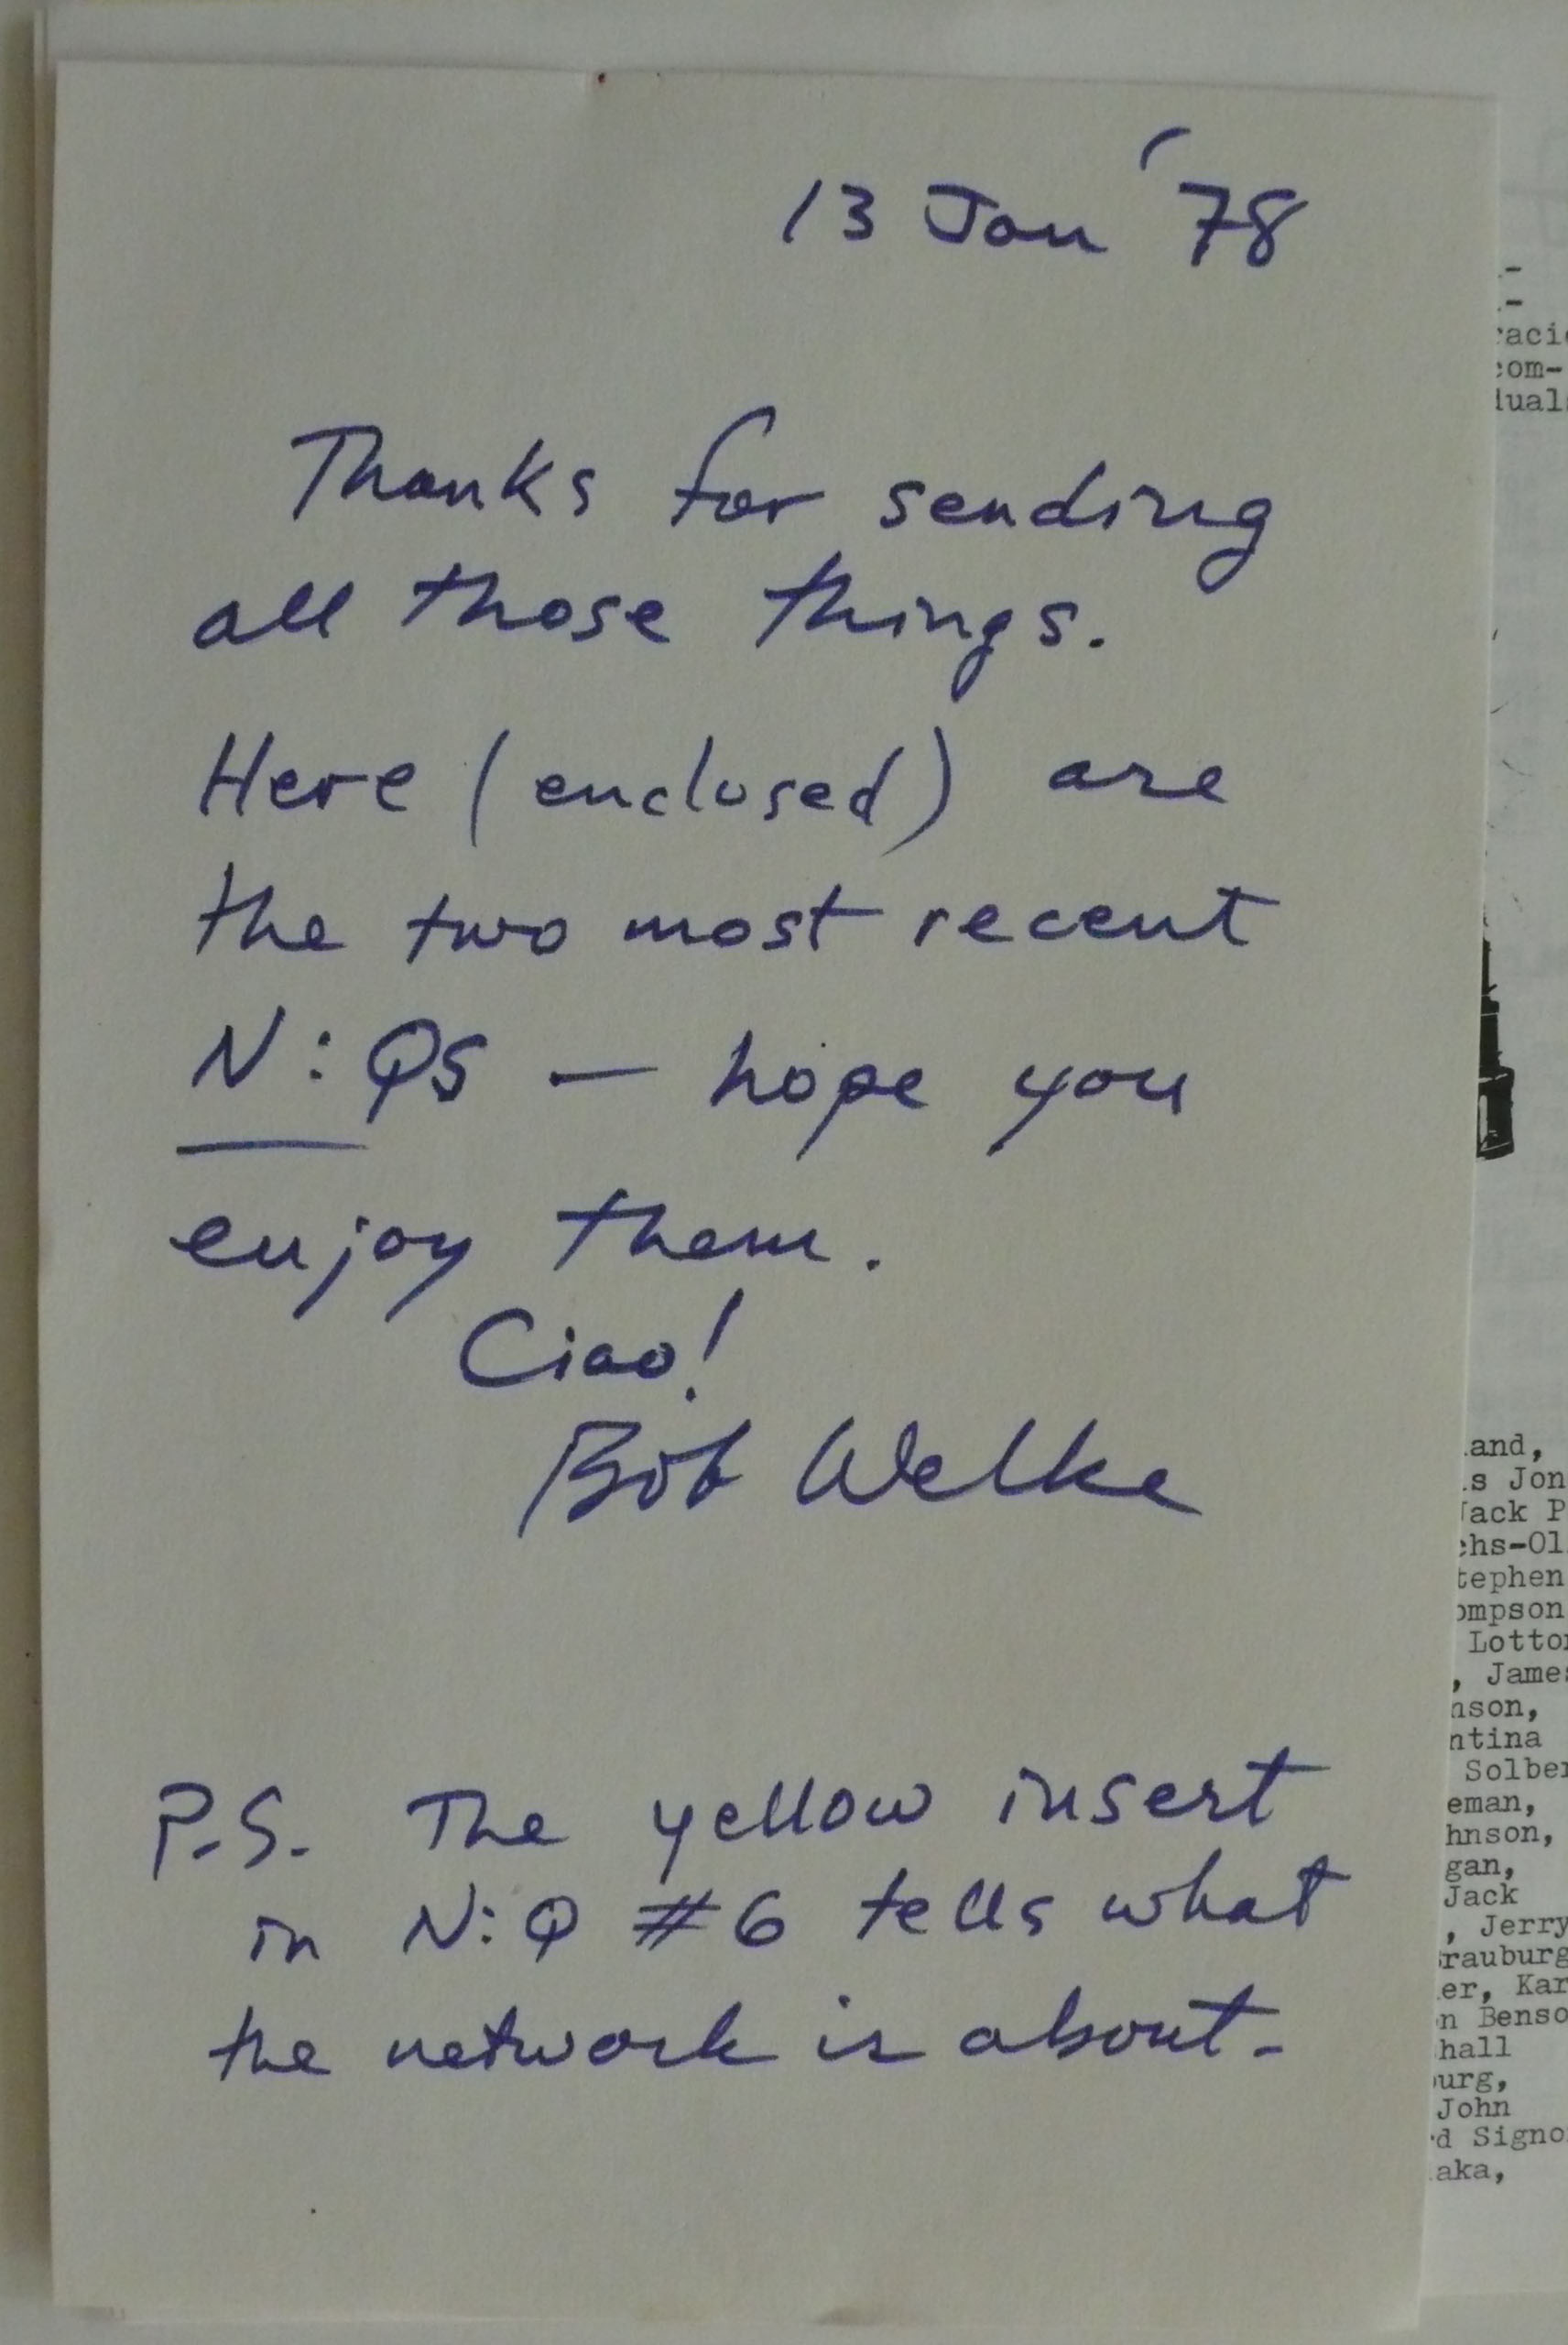 13 Jan '78
Thanks for sending
all those things.
Here (enclosed) are
the two most recent
N:QS — hope you
enjoy them.
Ciao!
Bob Welke
P.S. The yellow insert
in N:Q #6 tells what
the network is about.
com-
and,
s Jon
Jack P
tephen
ompson
Lotto
, James
nson,
ntina
Solber
eman,
hnson,
gan,
Jack
, Jerry
rauburg
er, Kar
n Benso
hall
urg,
John
d Signo
aka,